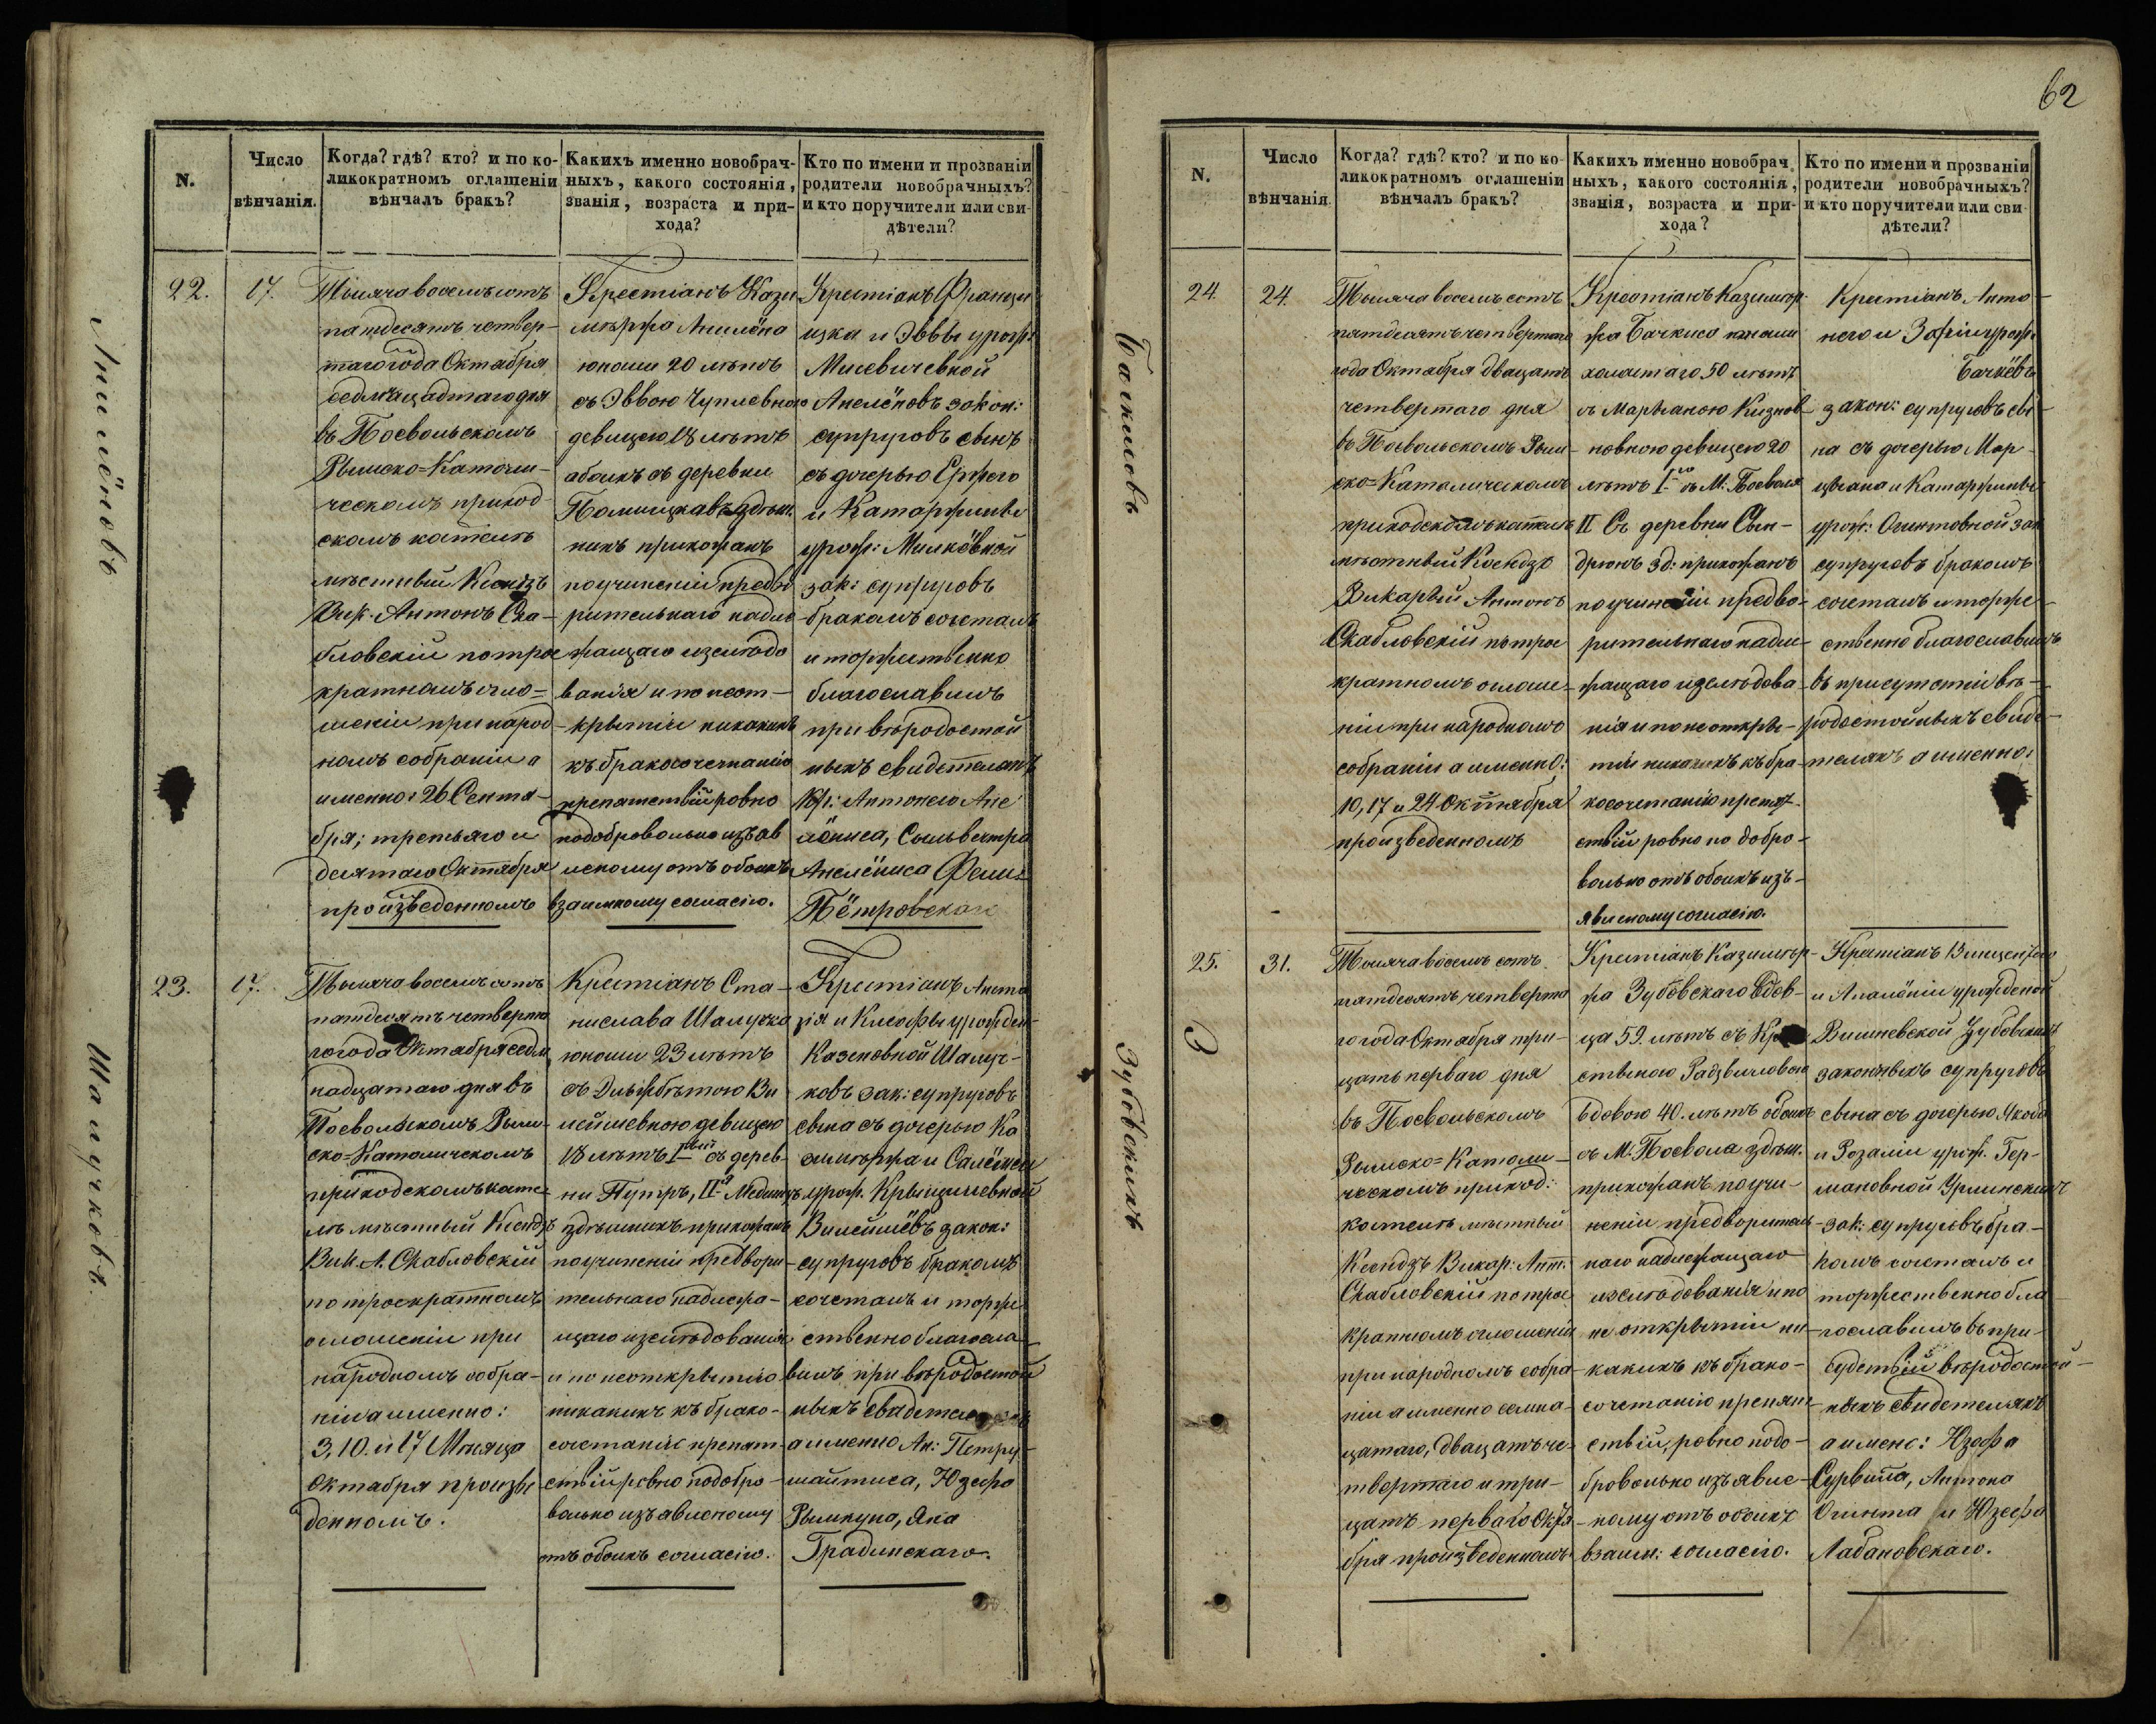 62
N.
Число
вѣнчанія.
Когда? гдѣ? кто? и по ко-
ликократномъ оглашеніи
вѣнчалъ бракъ?
Какихъ именно новобрач-
ныхъ, какого состоянія,
званія, возраста и при-
хода?
Кто по имени и прозванію
родители новобрачныхъ?
и кто поручители или сви-
дѣтели?
22.
17.
Тысяча восемъ сотъ
пятдесятъ четвер-
таго года Октября
седмнацадтаго дня
въ Посвольскомъ
Римско=Католи-
ческомъ приход
скомъ костелѣ
мѣстный Ксендзъ
Вик. Антонъ Ска-
бловскій по трое
кратномъ огло=
шеніи при народ
номъ собраніи а
именно: 26 Сентя-
бря; третьяго и
десятаго Октября
произведенномъ
Крестіанъ Кази
мѣржа
юноши 20 лѣтъ
съ Эввою
девицею 18 лѣтъ
абоихъ съ деревни
здѣш.
нихъ прихожанъ
по учиненіи предва
рительнаго надле
жащаго изслѣдо
ванія и по неот-
крытіи никакихъ
къ бракосочетанію
препятствій ровно
по добровольно изъяв
леному отъ обоихъ
взаимному согласію.
Крестіанъ Францы
шка и Эввы урож:
Мисевичевной
закон:
супруговъ сынъ
съ дочерью
и Катаржины
урож:
зак: супруговъ
бракомъ сочеталъ
и торжественно
благославилъ
при вѣродостой
ныхъ свидетеляхъ
Антонего
Сыльвестра
Анелёниса
23.
17.
Тысяча восемъ сотъ
пятдесятъ четверта
го года Октября седм
надцатаго дня въ
Посвольскомъ Рим-
ско=Католическомъ
приходскомъ косте-
лѣ мѣстный Ксендзъ
Вик. А. Скабловскій
по троекратномъ
оглошеніи при
народномъ собра-
ніи а именно:
3, 10. и 17 Мѣсяца
Октября произве
денномъ.
Крестіанъ Ста-
нислава
юноши 23 лѣтъ
съ Эльжбѣтою Ви
лейшевною девицею
18 лѣтъ I съ дерев-
ни II
здѣшнихъ прихожанъ
по учиненіи предвори-
тельнаго надлежа-
щаго изслѣдованія
и по неоткрытію
никакихъ къ брако-
сочетанію препят-
ствій ровно по добро-
вольно изъявленому
отъ обоихъ согласію.
Крестіанъ Анста
зія и Клеофы урожден-
зак: супруговъ
сына съ дочерью Ка
зимѣржа и Саломеи
урож.
Вилейшёвъ закон:
супруговъ бракомъ
сочеталъ и торже
ственно благосла-
вилъ при вѣродостой
ныхъ свидетеляхъ
а именно Ан: Петру-
шайтиса, Юзефа
Рымкуна, Яна
Градинскаго.
Шалучковъ.
N.
Число
вѣнчанія.
Когда? гдѣ? кто? и по ко-
ликократномъ оглашеніи
вѣнчалъ бракъ?
Какихъ именно новобрач
ныхъ, какого состоянія,
званія, возраста и при-
хода?
Кто по имени и прозванію
родители новобрачныхъ?
и кто поручители или сви-
дѣтели?
24.
24.
Тысяча восемъ сотъ
пятдесятъ четвертаго
года Октября двацать
четвертаго дня
въ Посвольскомъ Рим-
ско=Католическомъ
приходскомъ костелѣ
мѣстный Ксендзъ
Викарый Антонъ
Скабловскій по трое
кратномъ оглоше-
ніи при народномъ
собраніи а именно:
10, 17 и 24 Октября
произведенномъ
Крестіанъ Казимѣр-
жа
холостаго 50 лѣтъ
съ Марьяною
девицею 20
лѣтъ I съ М. Посволя
II Съ деревни
зд: прихожанъ
по учиненіи предво-
рительнаго надле-
жащаго изслѣдова-
нія и по неоткры-
тіи никакихъ къ бра-
косочетанію препят-
ствій ровно по добро-
вольно отъ обоихъ изъ-
явленому согласію.
Крестіанъ Анто-
него и Зофіи урож.
закон: супруговъ сы-
на съ дочерью Мар-
цыяна и Катаржины
урож: зак
супруговъ бракомъ
сочеталъ и торже-
ственно благославилъ
въ присутствіи вѣ-
родостойныхъ свиде-
теляхъ а именно:
25.
31.
З
Тысяча восемъ сотъ
пятдесятъ четверта
го года Октября три-
цать перваго дня
въ Посвольскомъ
Римско=Католи-
ческомъ приход:
костелѣ мѣстный
Ксендзъ Викар: Ант.
Скабловскій по трое
кратномъ оглошеніи
при народномъ собра-
ніи а именно семна-
цатаго, двацать че-
твертаго и три-
цать перваго Октя-
бря произведенномъ
Крестіанъ Казимѣр-
жа Зубовскаго вдов-
ца 59. лѣтъ съ
вдовою 40. лѣтъ обоихъ
съ М. Посволя здѣш.
прихожанъ по учи-
неніи предворитель-
наго надлежащаго
изслѣдованія и по
не открытіи ни-
какихъ къ брако-
сочетанію препят-
ствій, ровно по до-
бровольно изъявле-
ному отъ обоихъ
взаим: согласію.
Крестіанъ Винцентего
и Апалёніи урожденой
Вишневской Зубовскихъ
законныхъ супруговъ
сына съ дочерью Якоба
и Розаліи урож. Гер-
мановной
зак: супруговъ бра-
комъ сочеталъ и
торжественно бла
гославилъ въ при-
судствій вѣродостой-
ныхъ свидетеляхъ
а имено: Юзефа
Сурвила, Антона
Огинта и Юзефа
Лабановскаго.
Зубовскихъ